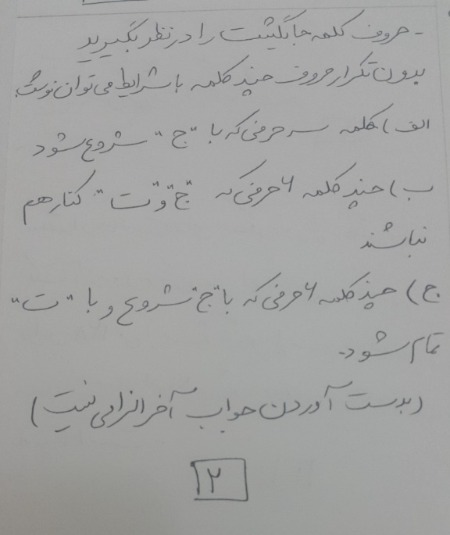 - حروف کلمه جانگیثت را در نظر بگیرید
بدون تکرار حروف چند کلمه با شرایط می توان نوشت.
الف) کلمه سه حرفی که با "ج" شروع شود
ب) چند کلمه ۶ حرفی که "ج و ت" کنار هم
نباشند
ج) چند کلمه ۶ حرفی که با "ج" شروع و با "ت"
تمام شود.
(بدست آوردن جواب آخر الزامی نیست)
۲